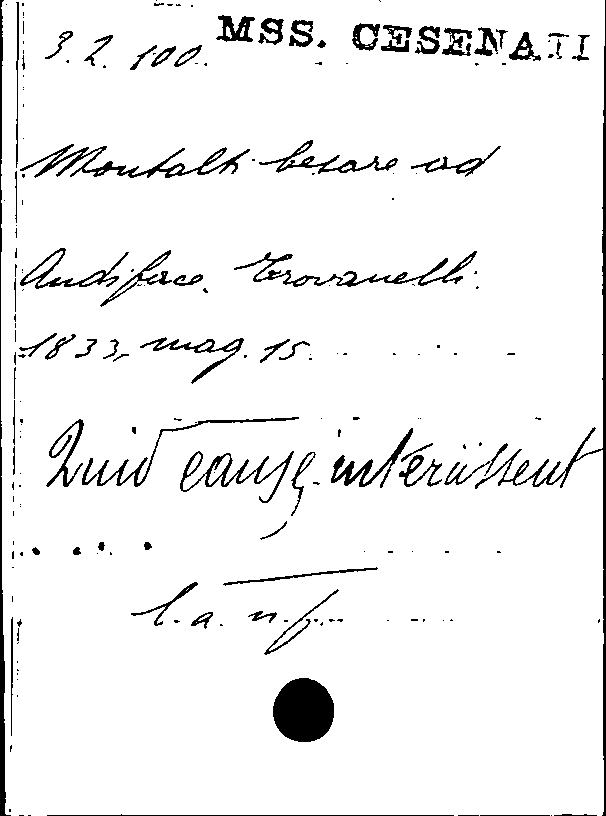 MSS. CESENATI
3. 2. 100.
Montalti Cesare ad
Andiface. Trovanelli.
1833, mag. 15.
Quid causę interiissent
. . . .
l. a. n. f.